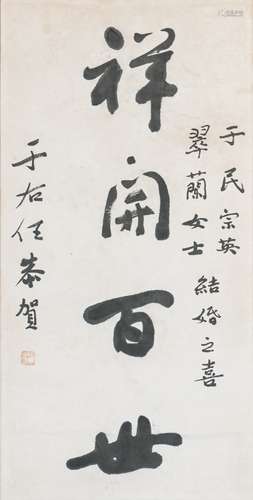 于民宗英
翠蘭女士 結婚之喜
祥開百世
于右任恭賀